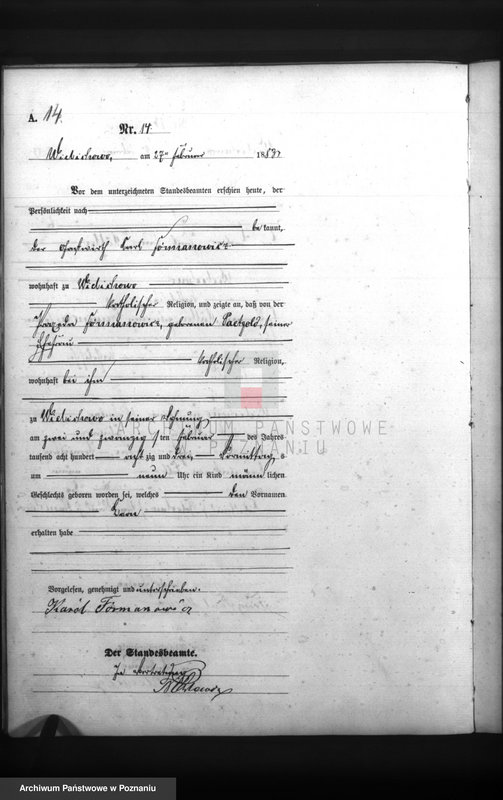 A. 14.
Nr. 14
am 27ten Februar 1883
Vor dem unterzeichneten Standesbeamten erschien heute, der
Persönlichkeit nach
be kannt,
der Carl
wohnhaft zu
katholischer Religion, und zeigte an, daß von der
geborenen Paetzold, seiner
Ehefrau
katholischer Religion,
wohnhaft bei ihm
zu in seiner Wohnung
am zwei und zwanzig ten Februar des Jahres
tausend acht hundert acht zig und drei, Vormittag s
um neun Uhr ein Kind männ lichen
Geschlechts geboren worden sei, welches den Vornamen
erhalten habe
Vorgelesen, genehmigt und unterschrieben.
Karól
Der Standesbeamte.
In Vertretung
ARCHIWUM PAŃSTWOWE
W POZNANIU
Archiwum Państwowe w Poznaniu